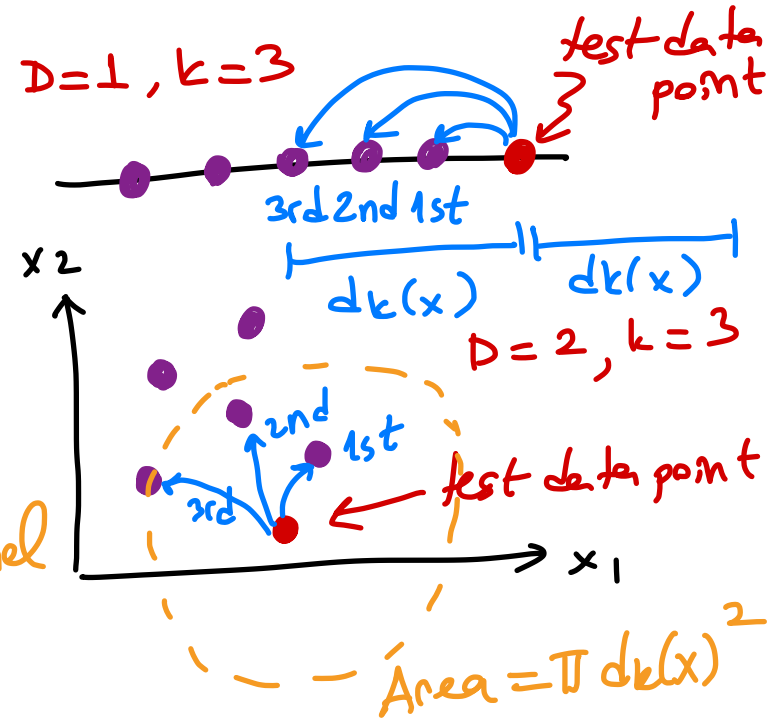 D=1, k=3
test data
point
3rd 2nd 1st
dk(x)
dk(x)
x2
D=2, k=3
2nd
1st
3rd
test data point
x1
Área = π dk(x)²